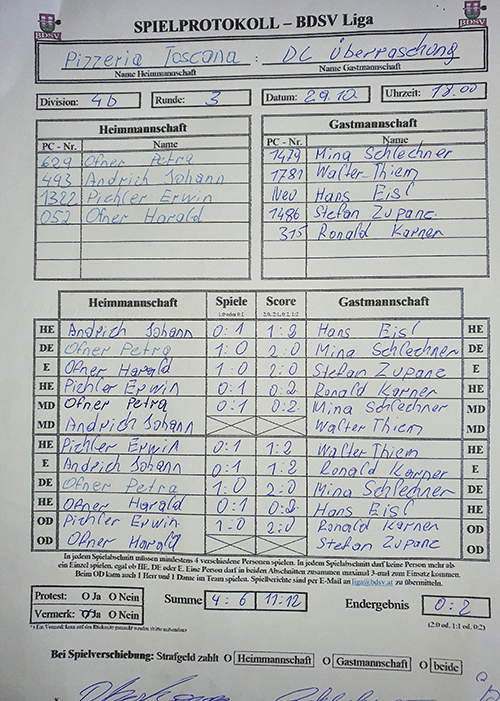 BDSV
BDSV
SPIELPROTOKOLL – BDSV Liga
Pizzeria Toscana : DC Überraschung
Name Heimmannschaft Name Gastmannschaft
Division: 4b Runde: 3 Datum: 29.10 Uhrzeit: 18.00
Heimmannschaft Gastmannschaft
PC - Nr. Name PC - Nr. Name
629 Ofner Petra 1479 Mina Schlechner
493 Andrich Johann 1781 Walter Thiem
1322 Pichler Erwin Neu Hans Eisl
052 Ofner Harald 1486 Stefan Zupanc
315 Ronald Karner
Heimmannschaft Spiele Score Gastmannschaft
1:0 oder 0:1 2:0, 2:1, 0:2, 1:2
HE Andrich Johann 0:1 1:2 Hans Eisl HE
DE Ofner Petra 1:0 2:0 Mina Schlechner DE
E Ofner Harald 1:0 2:0 Stefan Zupanc E
HE Pichler Erwin 0:1 0:2 Ronald Karner HE
MD Ofner Petra 0:1 0:2 Mina Schlechner MD
MD Andrich Johann Walter Thiem MD
HE Pichler Erwin 0:1 1:2 Walter Thiem HE
E Andrich Johann 0:1 1:2 Ronald Karner E
DE Ofner Petra 1:0 2:0 Mina Schlechner DE
HE Ofner Harald 0:1 0:2 Hans Eisl HE
OD Pichler Erwin 1:0 2:0 Ronald Karner OD
OD Ofner Harald Stefan Zupanc OD
In jedem Spielabschnitt müssen mindestens 4 verschiedene Personen spielen. In jedem Spielabschnitt darf keine Person mehr als
ein Einzel spielen, egal ob HE, DE oder E. Eine Person darf in beiden Abschnitten zusammen maximal 3-mal zum Einsatz kommen.
Beim OD kann auch 1 Herr und 1 Dame im Team spielen. Spielberichte sind per E-Mail an liga@bdsv.at zu übermitteln.
Protest: O Ja O Nein Summe 4:6 11:12 Endergebnis 0:2
Vermerk: O Ja O Nein (2:0 od. 1:1 od. 0:2)
Bei Spielverschiebung: Strafgeld zahlt O Heimmannschaft O Gastmannschaft O beide